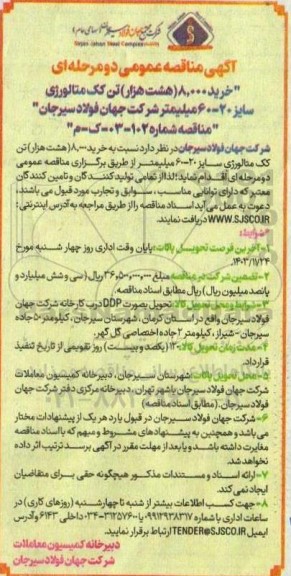 شرکت مجتمع جهان فولاد سیرجان (سهامی عام)
Sirjan Jahan Steel Complex
آگهی مناقصه عمومی دو مرحله ای
"خرید ۸,۰۰۰ (هشت هزار) تن کک متالورژی
سایز ۲۰-۶۰ میلیمتر شرکت جهان فولاد سیرجان"
"مناقصه شماره ۱۰۲-۰۳-ک-م"
شرکت جهان فولاد سیرجان در نظر دارد نسبت به خرید ۸,۰۰۰ (هشت هزار) تن
کک متالورژی سایز ۲۰-۶۰ میلیمتر از طریق برگزاری مناقصه عمومی
دو مرحله ای اقدام نماید؛ لذا از تمامی تولید کنندگان و تامین کنندگان
معتبر که دارای توانایی مناسب، سوابق و تجارب مورد قبول می باشند،
دعوت به عمل می آید اسناد مناقصه را از طریق مراجعه به آدرس اینترنتی:
WWW.SJSCO.IR دریافت نمایند.
*شرایط:
۱- آخرین فرصت تحویل پاکات: پایان وقت اداری روز چهار شنبه مورخ
۱۴۰۳/۱۱/۲۴
۲- تضمین شرکت در مناقصه: مبلغ ۳۶,۵۰۰,۰۰۰,۰۰۰ ریال (سی و شش میلیارد و
پانصد میلیون ریال) ریال مطابق اسناد مناقصه.
۳- شرایط و محل تحویل کالا: تحویل بصورت DDP درب کارخانه شرکت جهان
فولاد سیرجان واقع در استان کرمان، شهرستان سیرجان، کیلومتر ۵۰ جاده
سیرجان - شیراز، کیلومتر ۲ جاده اختصاصی گل گهر.
۴- مدت زمان تحویل کالا: ۱۲۰ (یکصد و بیست) روز تقویمی از تاریخ تنفیذ
قرارداد.
۵- محل تحویل پاکات: شهرستان سیرجان، دبیرخانه کمیسیون معاملات
شرکت جهان فولاد سیرجان یا شهر تهران، دبیرخانه مرکزی دفتر شرکت جهان
فولاد سیرجان. (مطابق اسناد مناقصه)
۶- شرکت جهان فولاد سیرجان در قبول یا رد هر یک از پیشنهادات مختار
می باشد و همچنین به پیشنهادهای مشروط و مبهم که با اسناد مناقصه
مغایرت داشته باشد و یا بعد از مهلت مقرر در آگهی برسد ترتیب اثر داده
نخواهد شد.
۷- ارائه اسناد و مستندات مذکور هیچگونه حقی برای متقاضیان
ایجاد نمی کند.
۸- جهت کسب اطلاعات بیشتر از شنبه تا چهارشنبه (روزهای کاری) در
ساعات اداری با شماره ۰۹۹۱۲۹۳۸۳۱۷ یا ۰۳۴-۳۱۲۵۷۶۰۰ داخلی ۶۱۴۳ و آدرس
ایمیل TENDER@SJSCO.IR ارتباط برقرار نمایید.
دبیرخانه کمیسیون معاملات
شرکت جهان فولاد سیرجان